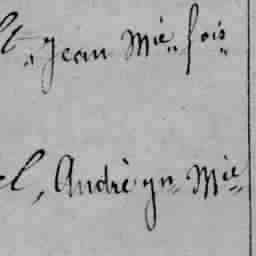 t, Jean Mie fois
el, André yn Mie